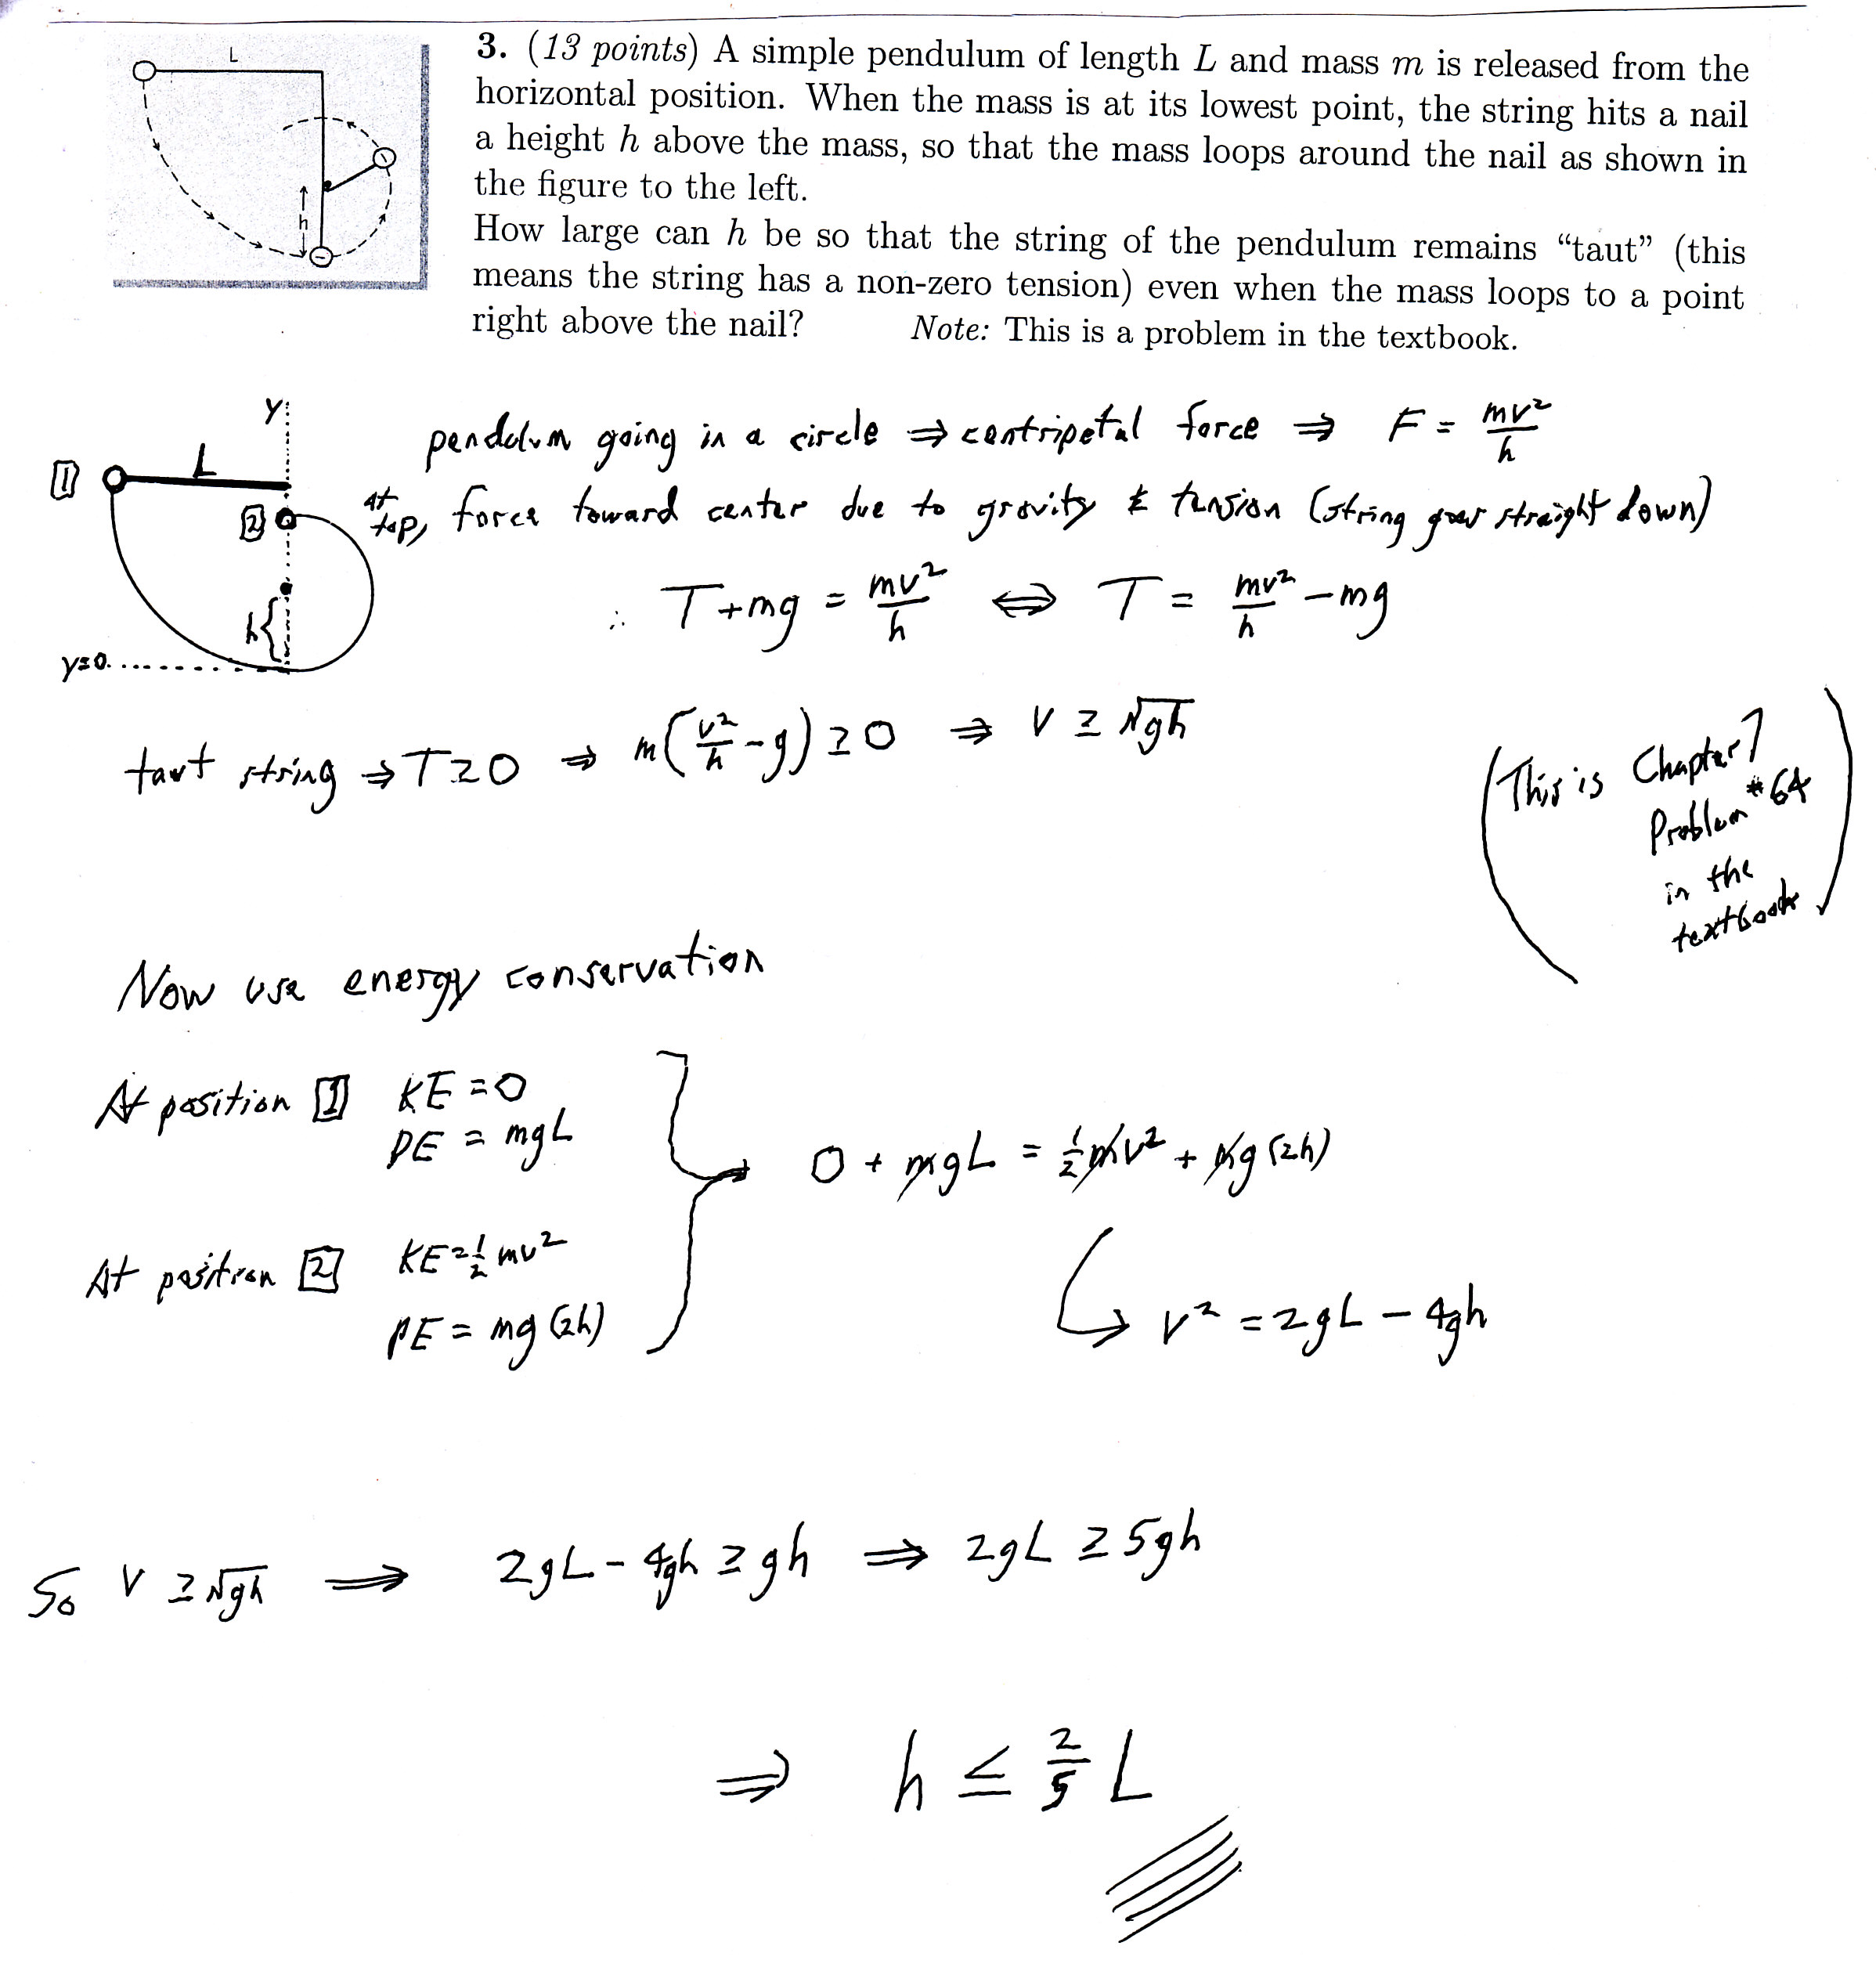 L
h
3. (13 points) A simple pendulum of length L and mass m is released from the
horizontal position. When the mass is at its lowest point, the string hits a nail
a height h above the mass, so that the mass loops around the nail as shown in
the figure to the left.
How large can h be so that the string of the pendulum remains “taut” (this
means the string has a non-zero tension) even when the mass loops to a point
right above the nail? Note: This is a problem in the textbook.
y
1 L
2
h
y=0
pendulum going in a circle ⇒ centripetal force ⇒ F = mv²/h
At top, force toward center due to gravity & tension (string goes straight down)
∴ T + mg = mv²/h ⇔ T = mv²/h − mg
taut string → T ≥ 0 ⇒ m(v²/h − g) ≥ 0 ⇒ v ≥ √gh
(This is Chapter 7
Problem #64
in the
textbook)
Now use energy conservation
At position 1 KE = 0
PE = mgL
0 + mgL = ½mv² + mg(2h)
At position 2 KE = ½mv²
PE = mg(2h)
v² = 2gL − 4gh
So v ≥ √gh ⇒ 2gL − 4gh ≥ gh ⇒ 2gL ≥ 5gh
⇒ h ≤ 2/5 L